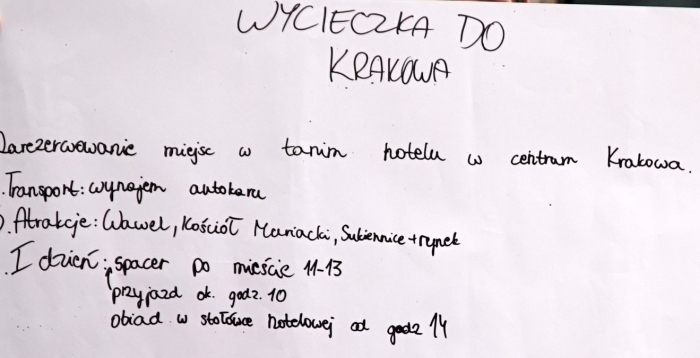 WYCIECZKA DO
KRAKOWA
Zarezerwowanie miejsc w tanim hotelu w centrum Krakowa.
Transport: wynajem autokaru
Atrakcje: Wawel, Kościół Mariacki, Sukiennice + rynek
I dzień: spacer po mieście 11-13
przyjazd ok. godz. 10
obiad w stołówce hotelowej od godz 14